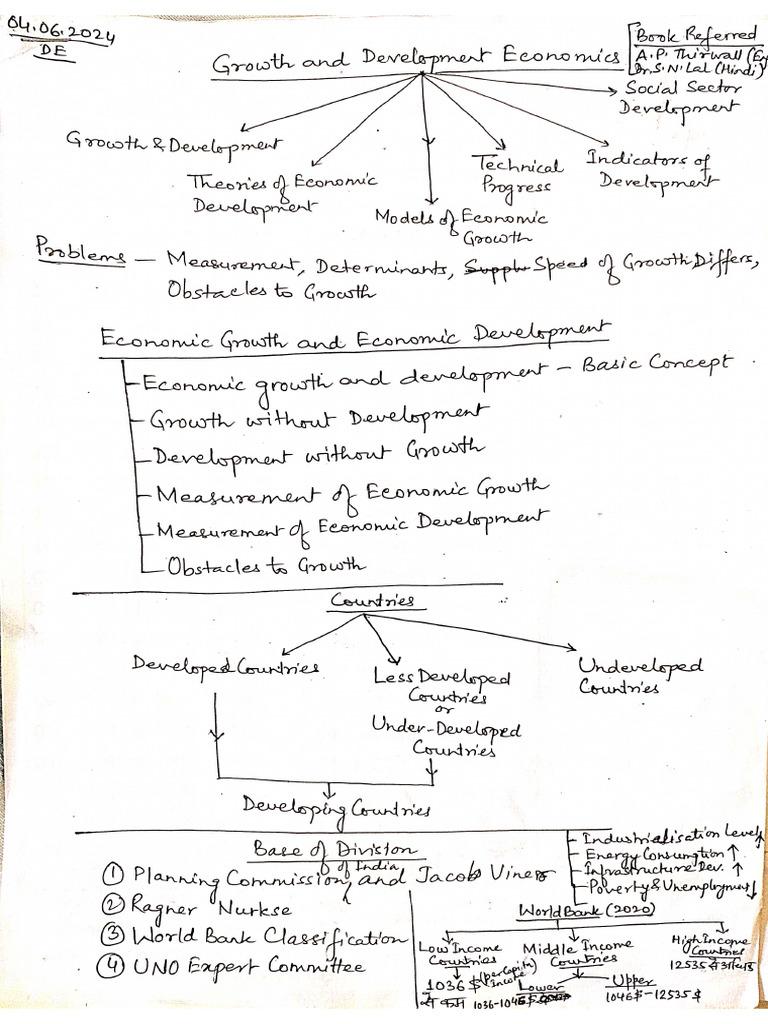 04.06.2024
DE
Book Referred
A.P. Thirwall (En
Dr.S.N.Lal (Hindi)
Growth and Development Economics
Social Sector
Development
Growth & Development
Theories of Economic
Development
Models of Economic
Growth
Technical
Progress
Indicators of
Development
Problems — Measurement, Determinants, Speed of Growth Differs,
Obstacles to Growth
Economic Growth and Economic Development
Economic growth and development – Basic Concept
Growth without Development
Development without Growth
Measurement of Economic Growth
Measurement of Economic Development
Obstacles to Growth
Countries
Developed Countries
Less Developed
Countries
or
Under-Developed
Countries
Undeveloped
Countries
Developing Countries
Base of Division
① Planning Commission of India and Jacob Viner
② Ragner Nurkse
③ World Bank Classification
④ UNO Expert Committee
Industrialisation Level ↑
Energy Consumption ↑
Infrastructure Dev. ↑
Poverty & Unemployment ↓
World Bank (2020)
Low Income
Countries
1036 $ (per Capita Income)
से कम
Middle Income
Countries
Lower
1036-1045 $
Upper
1046 $ – 12535 $
High Income
Countries
12535 से अधिक